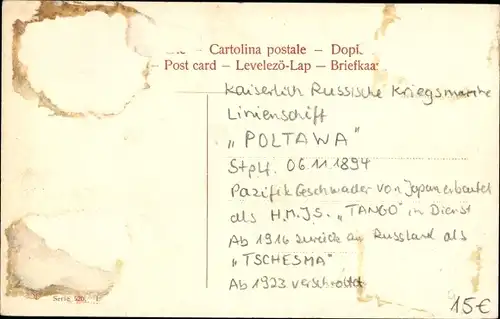 Cartolina postale –
– Post card – Levelező-Lap –
Kaiserlich Russische Kriegsmarine
Linienschiff
„POLTAWA"
Stplf. 06.11.1894
Pazifik Geschwader von Japan erbeutet
als H.M.J.S. „TANGO" in Dienst
Ab 1916 zurück an Russland als
„TSCHESMA"
Ab 1923 verschrottet
Serie
15€